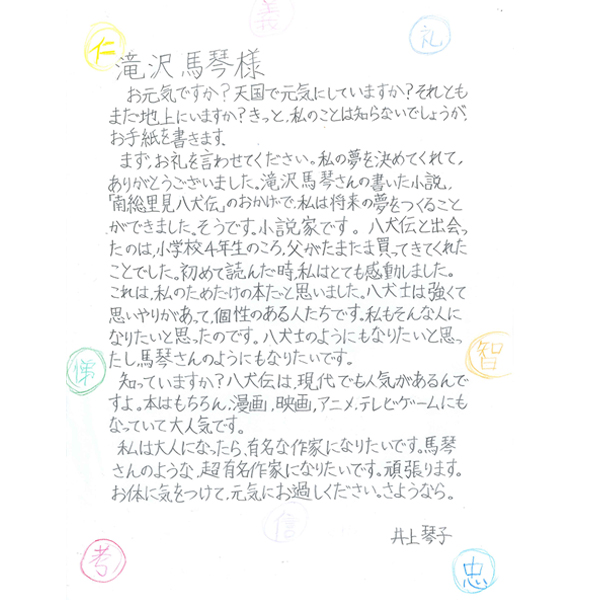 義
礼
仁
滝沢馬琴様
お元気ですか？天国で元気にしていますか？それとも
まだ地上にいますか？きっと、私のことは知らないでしょうが、
お手紙を書きます。
まず、お礼を言わせてください。私の夢を決めてくれて、
ありがとうございました。滝沢馬琴さんの書いた小説、
「南総里見八犬伝」のおかげで、私は将来の夢をつくること
ができました。そうです。小説家です。八犬伝と出会っ
たのは、小学校4年生のころ、父がたまたま買ってきてくれた
ことでした。初めて読んだ時、私はとても感動しました。
これは、私のためだけの本だと思いました。八犬士は強くて
思いやりがあって、個性のある人たちです。私もそんな人に
なりたいと思ったのです。八犬士のようにもなりたいと思っ
たし、馬琴さんのようにもなりたいです。
智
悌
知っていますか？八犬伝は、現代でも人気があるんで
すよ。本はもちろん、漫画、映画、アニメ、テレビゲームにも
なっていて大人気です。
私は大人になったら、有名な作家になりたいです。馬琴
さんのような、超有名作家になりたいです。頑張ります。
お体に気をつけて、元気にお過しください。さようなら。
信
井上琴子
考
忠